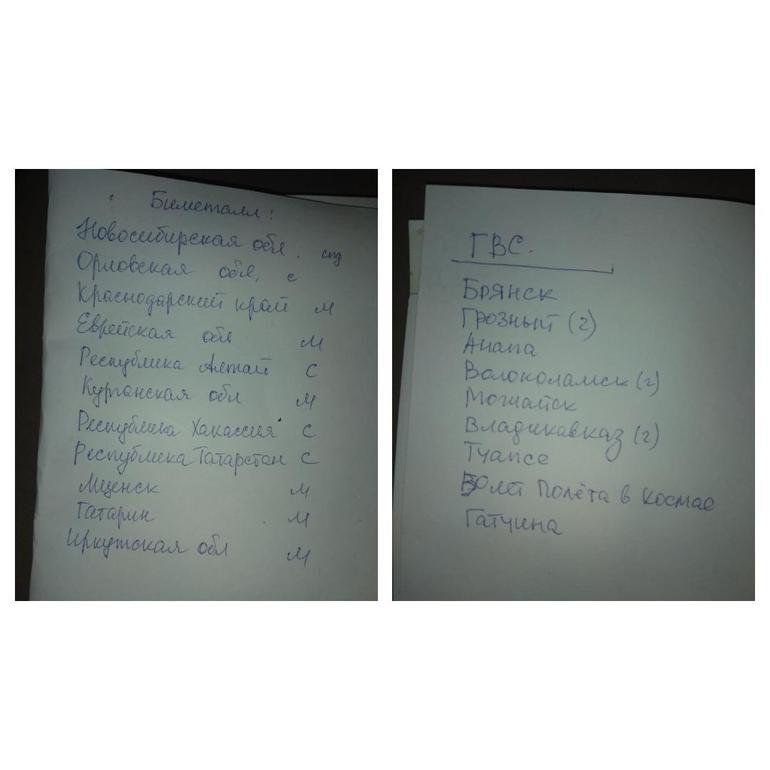 Биметалл:
Новосибирская обл. спд
Орловская обл. с
Краснодарский край м
Еврейская обл м
Республика Алтай с
Курганская обл м
Республика Хакассия с
Республика Татарстан с
Мценск м
Гагарин м
Иркутская обл м
ГВС.
Брянск
Грозный (2)
Анапа
Волоколамск (2)
Можайск
Владикавказ (2)
Туапсе
50 лет Полёта в космос
Гатчина